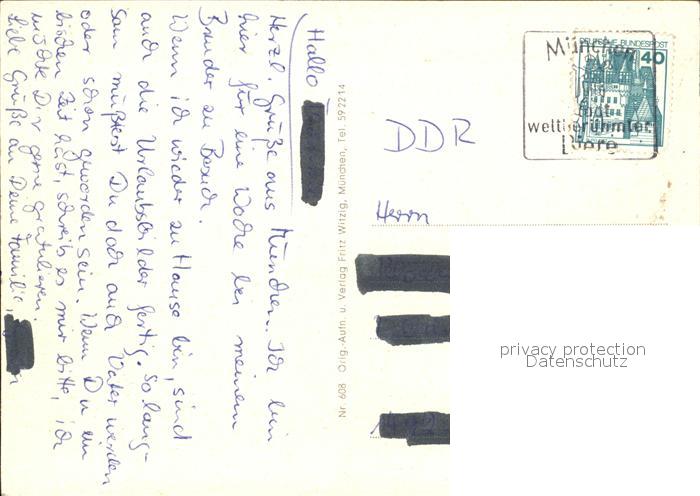 Hallo
Herzl. Grüße aus München. Ich bin
hier für eine Woche bei meinem
Bruder zu Besuch.
Wenn ich wieder zu Hause bin, sind
auch die Urlaubsbilder fertig. So lang-
sam müßtest Du doch auch Vater werden
oder schon geworden sein. Wenn Du ein
bißchen Zeit hast, schreib es mir bitte, ich
möchte Dir gerne gratulieren.
Liebe Grüße an Deine Familie,
Nr. 608 Orig.-Aufn. u. Verlag Fritz Witzig, München, Tel. 592214
München
Stadt
weltberühmter
Biere
DEUTSCHE BUNDESPOST
40
DDR
Herrn
privacy protection
Datenschutz